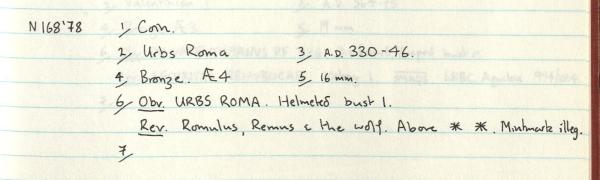 N168'78 1/ Coin.
2/ Urbs Roma 3/ A.D. 330-46.
4/ Bronze. Æ4 5/ 16 mm.
6/ Obv. URBS ROMA. Helmeted bust l.
Rev. Romulus, Remus & the wolf. Above * *. Mintmark illeg.
7/